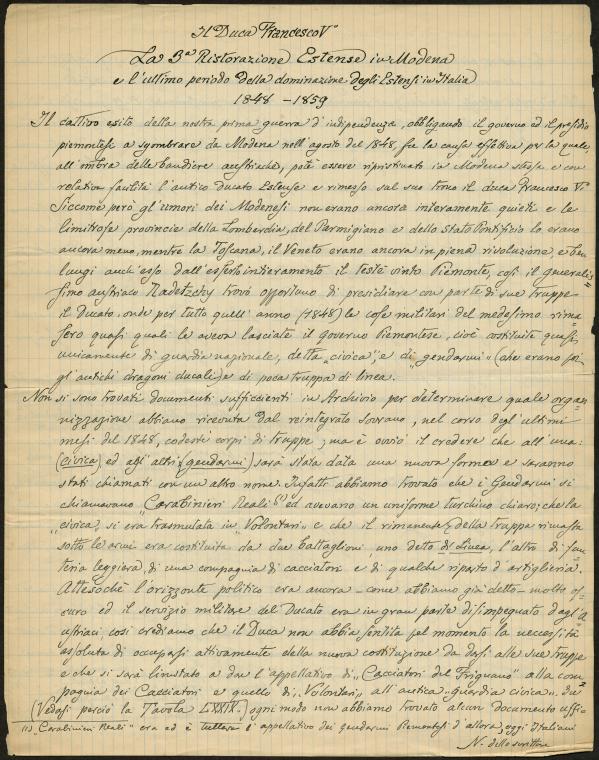 Il Duca Francesco Vº
La 3ª Ristorazione Estense in Modena
e l'ultimo periodo della dominazione degli Estensi in Italia
1848 – 1859
Il cattivo esito della nostra prima guerra d'indipendenza, obbligando il governo ed il presidio
piemontesi a sgombrare da Modena nell'agosto del 1848, fu la causa effettiva per la quale
all'ombra delle bandiere austriache, potè essere ripristinato in Modena stessa e con
relativa facilità l'antico Ducato Estense e rimesso sul suo trono il duca Francesco Vº
Siccome però gl'umori dei Modenesi non erano ancora interamente quieti e le
limitrofe provincie della Lombardia, del Parmigiano e dello Stato Pontificio lo erano
ancora meno, mentre la Toscana, il Veneto erano ancora in piena rivoluzione, e ben
lungi anch'esso dall'esserlo interamente il testè vinto Piemonte, così il generalis=
simo austriaco Radetzcky trovò opportuno di presidiare con parte di sue truppe
il Ducato, onde per tutto quell'anno (1848) le cose militari del medesimo rima=
sero quasi quali le aveva lasciate il governo Piemontese, cioè costituite quasi
unicamente di guardia nazionale, detta „civica", e di „gendarmi" (che erano poi
gl'antichi dragoni ducali) e di poca truppa di linea.
Non si sono trovati documenti sufficienti in Archivio per determinare quale orga=
nizzazione abbiano ricevuta dal reintegrato sovrano, nel corso degl'ultimi
mesi del 1848, codesti corpi di truppe; ma è ovvio il credere che all'una
(civica) ed agl'altri (gendarmi) sarà stata data una nuova forma e saranno
stati chiamati con un altro nome. Infatti abbiamo trovato che i Gendarmi si
chiamavano „Carabinieri Reali" (1) ed avevano un uniforme turchino chiaro; che la
„civica„ si era trasmutata in „Volontari" e che il rimanente della truppa rimasta
sotto le armi era costituita da due battaglioni, uno detto di Linea, l'altro di fan=
teria leggiera, di una compagnia di cacciatori e di qualche riparto d'artiglieria.
Attesochè l'orizzonte politico era ancora – come abbiamo già detto – molto os=
curo ed il servizio militare del Ducato era in gran parte disimpegnato dagl'A=
ustriaci, così crediamo che il Duca non abbia sentita pel momento la necessità
assoluta di occuparsi attivamente della nuova costituzione da darsi alle sue truppe
e che si sarà limitato a dare l'appellativo di „Cacciatori del Frignano" alla com=
pagnia dei Cacciatori e quello di „Volontari„ all'antica „guardia civica„. di
(Vedasi perciò la Tavola LXXIV.) ogni modo non abbiamo trovato alcun documento uffic
(1) „Carabinieri Reali" era ed è tuttora l'appellativo dei gendarmi Piemontesi d'allora, oggi Italiani
N. dello scrittore